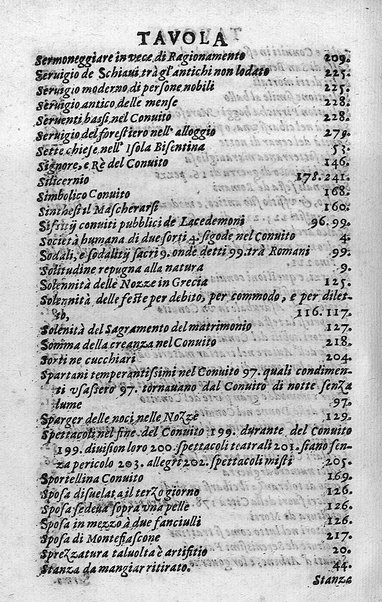 TAVOLA
Sermoneggiare in vece di Ragionamento 209.
Seruigio de Schiaui trà gl'antichi non lodato 225.
Seruigio moderno di persone nobili 225.
Seruigio antico delle mense 228.
Seruenti bassi nel Conuito 228.
Seruigio del forestiero nell'alloggio 279.
Sette chiese nell'Isola Bisentina 53.
Signore, e Rè del Conuito 146.
Silicernio 178. 241.
Simbolico Conuito 168.
Sinthesi il Mascherarsi 160.
Sifitij conuiti publici de Lacedemoni 96. 99.
Società humana di due sorti 4. si gode nel Conuito 4.
Sodali, e sodalitij sacri 9. onde detti 99. trà Romani 99.
Solitudine repugna alla natura 9.
Solennità delle Nozze in Grecia 125.
Solennità, delle feste per debito, per commodo, e per diletto,
116. 117.
Solēnità del Sagramento del matrimonio 127.
Somma della creanza nel Conuito 218.
Sorti ne cucchiari 204.
Spartani temperantissimi nel Conuito 97. quali condimenti
vsassero 97. tornauano dal Conuito di notte senza
lume 97.
Sparger delle noci nelle Nozze 129.
Spettacoli nel fine del Conuito 199. durante del Conuito
199. diuision loro 200. spettacoli teatrali 201. siano senza
pericolo 203. allegri 202. spettacoli misti 205.
Sportellina Conuito 169.
Sposa disuelata il terzo giorno 126.
Sposa sedeua sopra vna pelle 126.
Sposa in mezzo à due fanciulli 126.
Sposa di Montefiascone 217.
Sprezzatura taluolta è artifitio 20.
Stanza da mangiar ritirato. 44.
Stanza